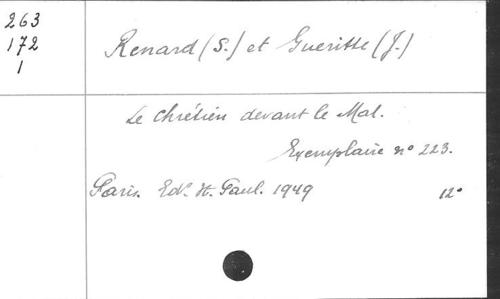 263
172
1
Renard (S.) et Gueritte (J.)
Le Chrétien devant le Mal.
Exemplaire nº 223.
Paris. Ed. St. Paul. 1949 12º